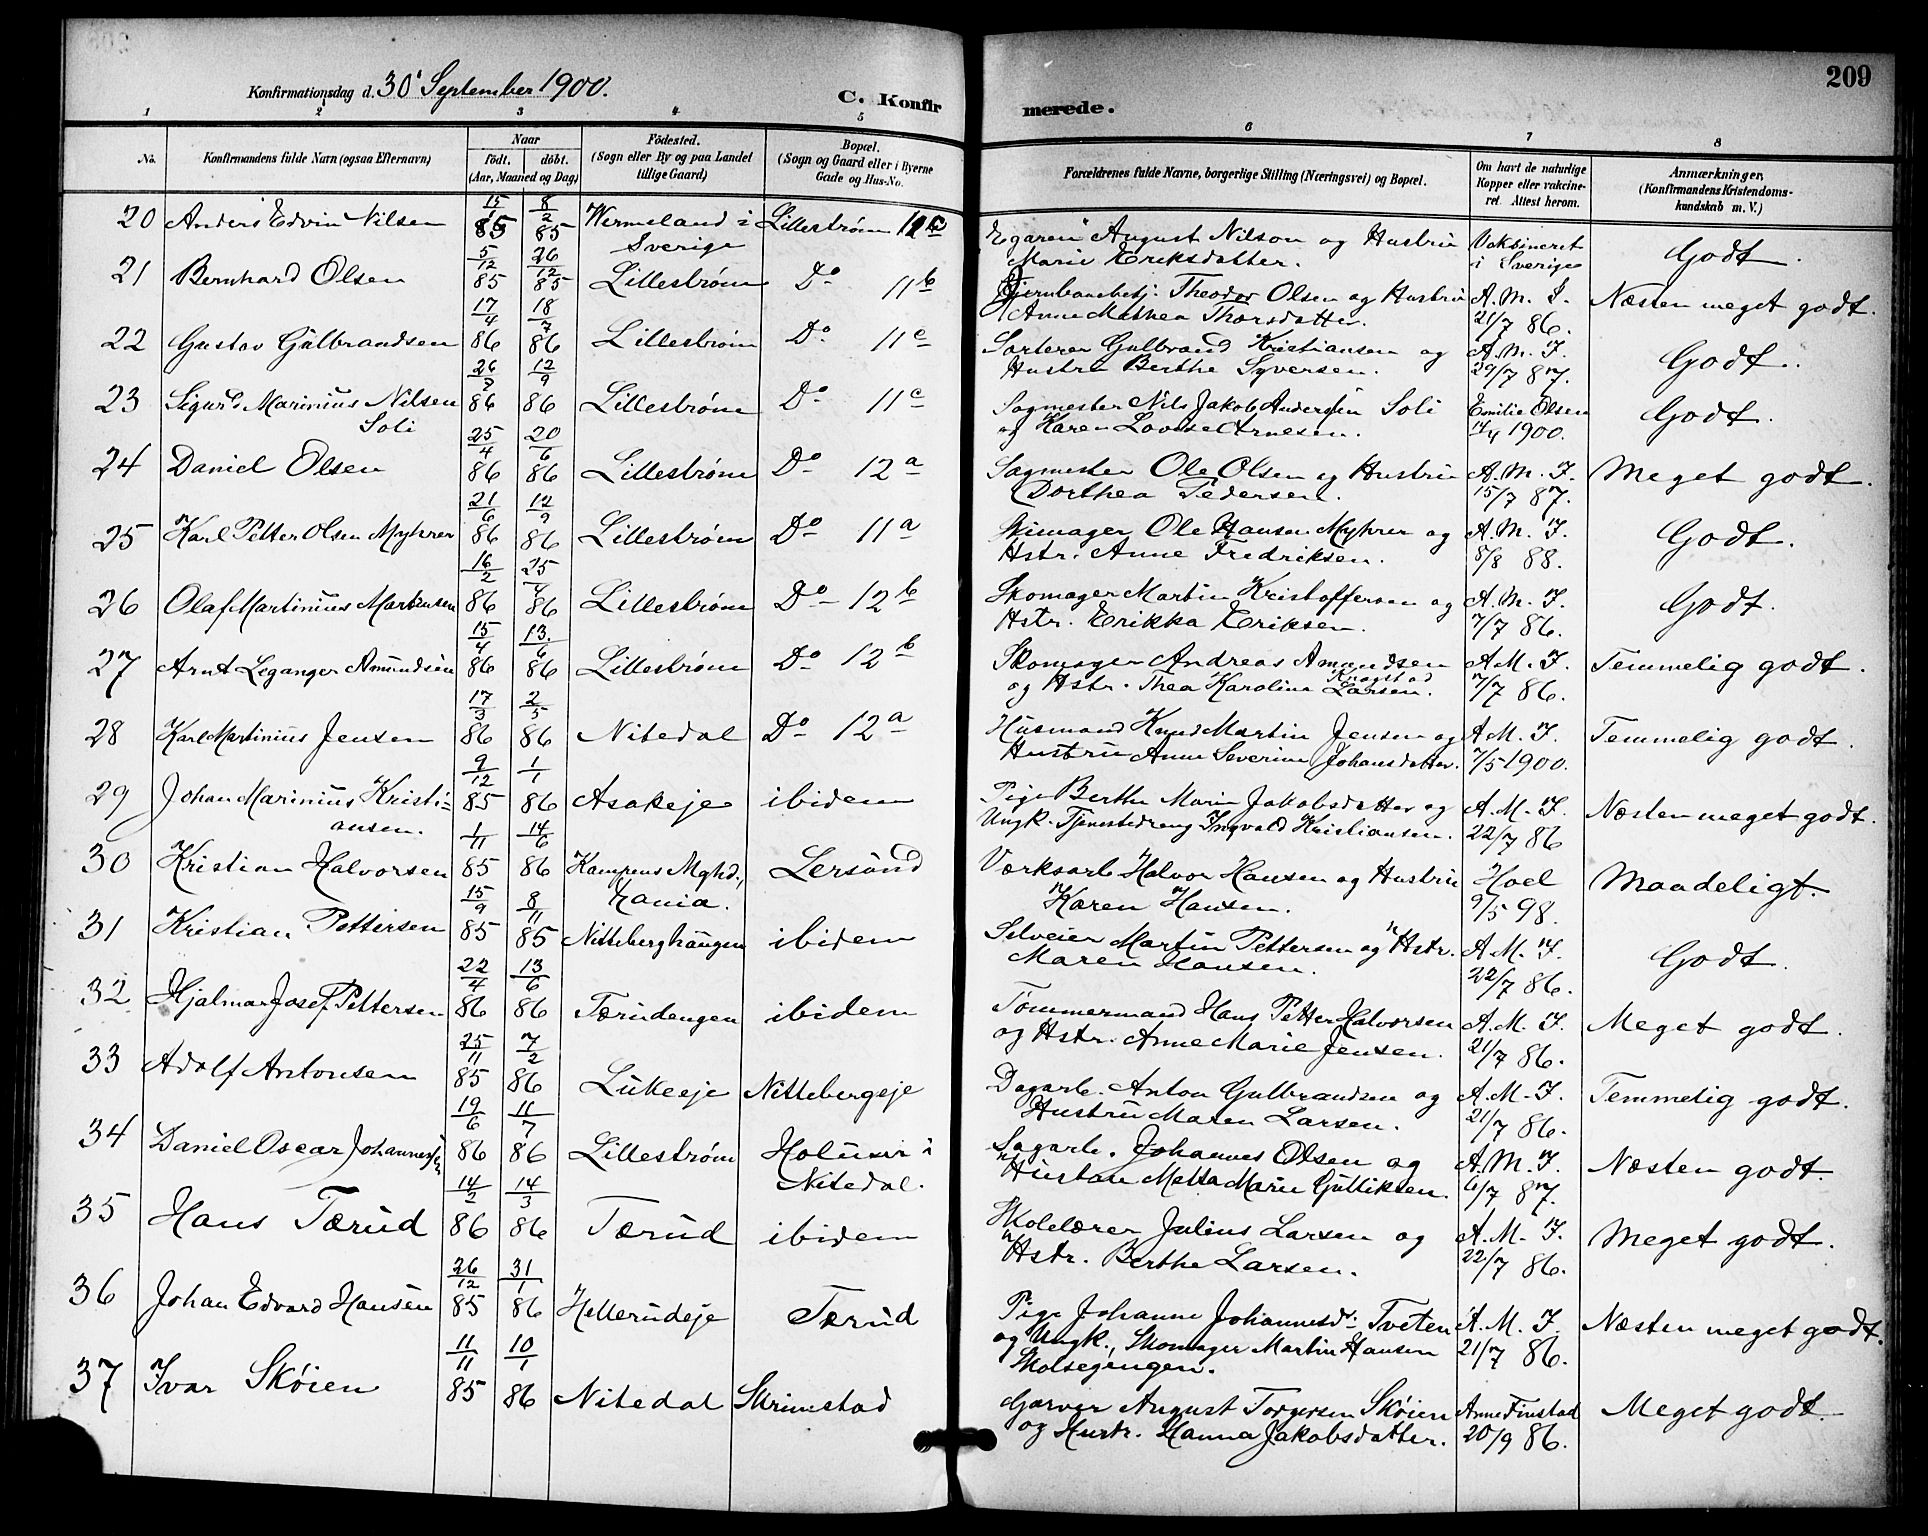 209
Konfirmationsdag d. 30' September 1900.
C. Konfirmerede.
1 2 3 4 5 6 7 8
No.
Konfirmandens fulde Navn (ogsaa Efternavn)
Naar
født. døbt.
(Aar, Maaned og Dag)
Fødested.
(Sogn eller By og paa Landet
tillige Gaard)
Bopæl.
(Sogn og Gaard eller i Byerne
Gade og Hus-No.
Forældrenes fulde Navne, borgerlige Stilling (Næringsvei) og Bopæl.
Om havt de naturlige
Kopper eller vakcine-
ret. Attest herom.
Anmærkninger,
(Konfirmandens Kristendoms-
kundskab m. V.)
20 Anders Edvin Nilsen 15/1 85 8/2 85 Wermeland i Sverige Lillestrøm Egaren August Nilson og Hustru Marie Eriksdatter. Vaksineret i Sverige Godt.
21 Bernhard Olsen 5/12 85 26/12 85 Lillestrøm Do 11b Jernbanebetj. Theodor Olsen og Hustru Anne Mathea Thorsdatter. A. M. I. 21/7 86. Næsten meget godt.
22 Gustav Gulbrandsen 17/4 86 18/7 86 Lillestrøm Do 11c Sorterer Gulbrand Kristiansen og Hustru Berthe Syversen. A. M. I. 29/7 87. Godt.
23 Sigurd Marinius Nilsen Soli 26/7 86 12/9 86 Lillestrøm Do 11c Sagmester Nils Jakob Andersen Soli og Karen Lovise Arnesen. Emilie Olsen 1900. Godt.
24 Daniel Olsen 25/4 86 20/6 86 Lillestrøm Do 12a Sagmester Ole Olsen og Hustru Dorthea Pedersen. A. M. I. 15/7 87. Meget godt.
25 Karl Petter Olsen Myhrer 21/6 86 12/9 86 Lillestrøm Do 11a Ole Hansen Myhrer og Hstr. Anne Fredriksen. A. M. I. 8/8 88. Godt.
26 Olaf Martinius Martinsen 16/2 86 25/4 86 Lillestrøm Do 12b Skomager Martin Kristoffersen og Hstr. Erikka Eriksen. A. M. I. 7/7 86. Godt.
27 Arnt Leganger Amundsen 15/4 86 13/6 86 Lillestrøm Do 12b Skomager Andreas Amundsen og Hstr. Thea Karoline Knagstad Larsen. A. M. I. 7/7 86. Temmelig godt.
28 Karl Martinius Jensen 17/3 86 2/5 86 Nitedal Do 12a Husmand Knud Martin Jensen og Hustru Anne Severine Johansdatter. A. M. I. 7/5 1900. Temmelig godt.
29 Johan Marinius Kristi=ansen. 9/12 85 1/1 86 Asakeje ibidem Pige Berthe Marie Jakobsdatter og Ungk. Tjenestedreng Ingvald Kristiansen. A. M. I. 22/7 86 Næsten meget godt.
30 Kristian Halvorsen 1/11 85 14/6 86 Kampens Mghd., Kania. Lersund Værksarb. Halvor Hansen og Hustru Karen Hansen. Hoel 9/5 98. Maadeligt.
31 Kristian Pettersen 15/9 85 8/11 85 Nitteberghaugen ibidem Selveier Martin Pettersen og Hstr. Maren Hansen. A. M. I. 22/7 86. Godt.
32 Hjalmar Josef Pettersen 22/4 86 13/6 86 Tærudengen ibidem Tømmermand Hans Petter Halvorsen og Hstr. Anne Marie Jensen. A. M. I. 21/7 86. Meget godt.
33 Adolf Antonsen 25/11 85 7/2 86 Lukeeje Nittebergeje Dagarb. Anton Gulbrandsen og Hustru Maren Larsen. A. M. I. 21/7 86. Temmelig godt.
34 Daniel Oscar Johannes 19/6 86 11/7 86 Lillestrøm i Nitedal. Sagarb. Johannes Olsen og Metta Marie Gulliksen. A. M. I. 6/7 87. Næsten godt.
35 Hans Tærud 14/2 86 14/3 86 Tærud ibidem Skolelærer Julius Larsen og Hstr. Berthe Larsen. A. M. I. 22/7 86. Meget godt.
36 Johan Edvard Hansen 26/12 85 31/1 86 Hellerudeje Tærud Pige Johanne Johannesd. Tveten og Ungk., Skomager Martin Hansen A. M. I. 21/7 86. Næsten meget godt.
37 Ivar Skøien 11/11 85 10/1 86 Nitedal Skrimstad Garver August Torgersen Skøien og Hustr. Hanna Jakobsdatter. Anne Finstad 20/9 86. Meget godt.